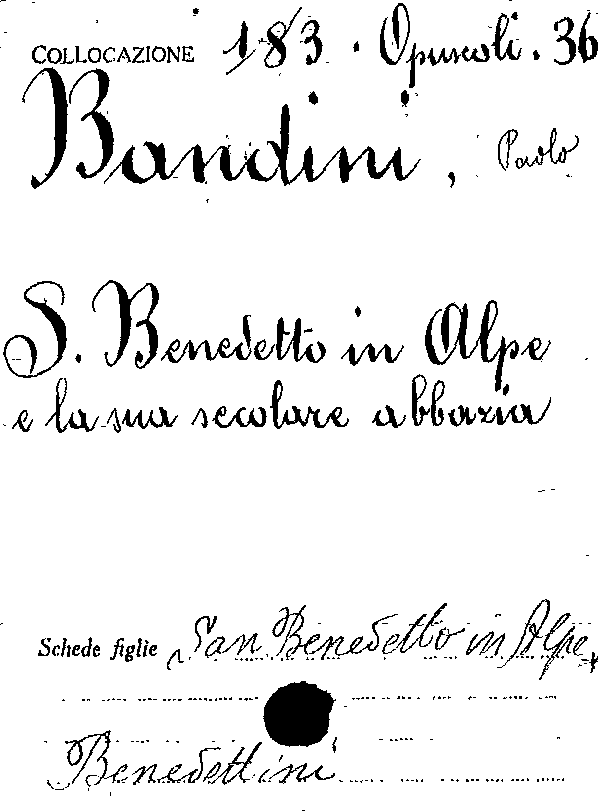 COLLOCAZIONE 183 . Opuscoli . 36
Bandini, Paolo
S. Benedetto in Alpe
e la sua secolare abbazia
Schede figlie San Benedetto in Alpe
Benedettini